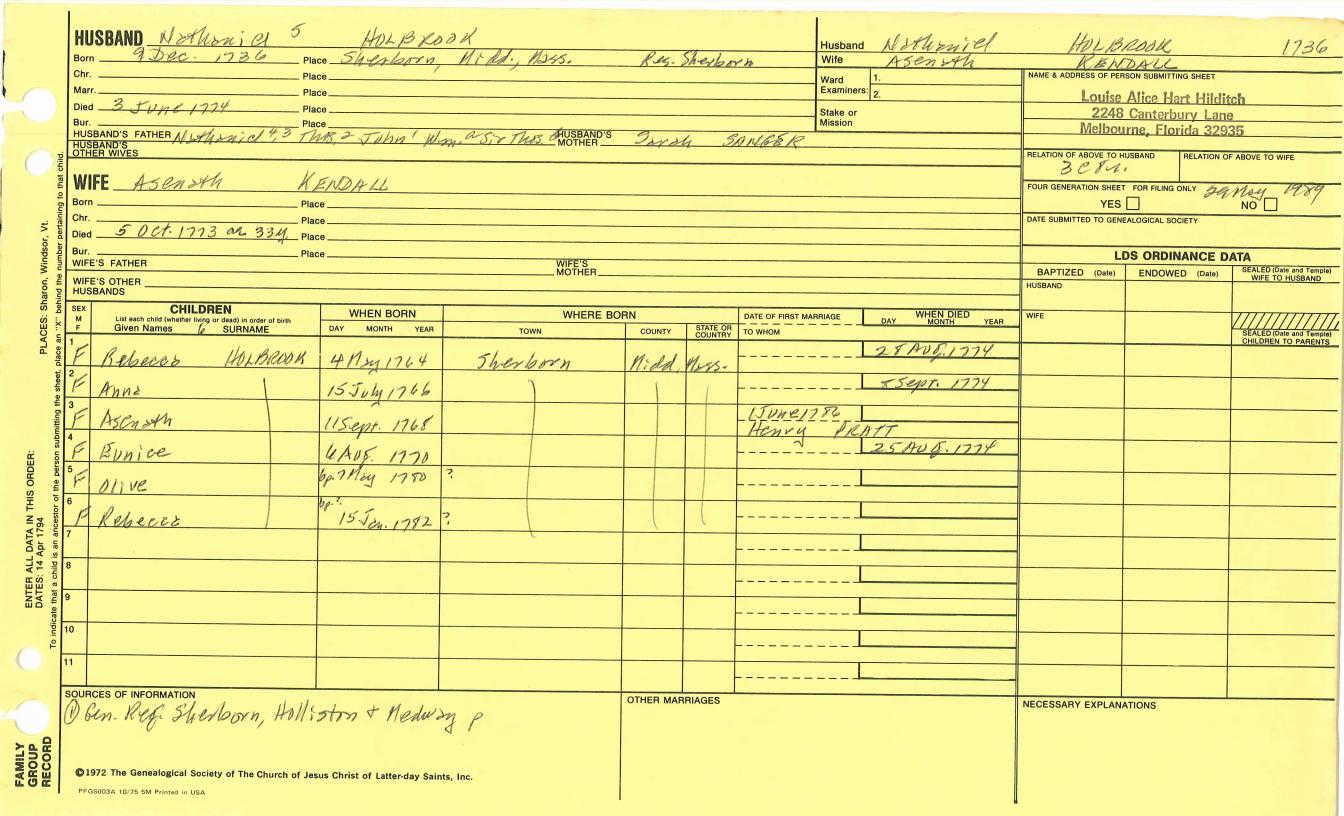 HUSBAND Nathaniel 5 HOLBROOK
Born 9 Dec. 1736 Place Sherborn, Midd., Mass. Res. Sherborn
Chr. Place
Marr. Place
Died 3 June 1774 Place
Bur. Place
HUSBAND'S FATHER Nathaniel 4,3 Thos. 2 John 1 Wm. a Sir Thos. HUSBAND'S MOTHER Sarah SANGER
HUSBAND'S OTHER WIVES
WIFE Asenath KENDALL
Born Place
Chr. Place
Died 5 Oct. 1773 ae 33y. Place
Bur. Place
WIFE'S FATHER WIFE'S MOTHER
WIFE'S OTHER HUSBANDS
Husband Nathaniel HOLBROOK 1736
Wife Asenath KENDALL
Ward Examiners: 1.
2.
Stake or Mission
NAME & ADDRESS OF PERSON SUBMITTING SHEET
Louise Alice Hart Hilditch
2248 Canterbury Lane
Melbourne, Florida 32935
RELATION OF ABOVE TO HUSBAND RELATION OF ABOVE TO WIFE
3 C 8 r.
FOUR GENERATION SHEET FOR FILING ONLY 29 May 1989
YES NO
DATE SUBMITTED TO GENEALOGICAL SOCIETY
LDS ORDINANCE DATA
BAPTIZED (Date) ENDOWED (Date) SEALED (Date and Temple) WIFE TO HUSBAND
HUSBAND
WIFE
SEALED (Date and Temple) CHILDREN TO PARENTS
SEX M F CHILDREN WHEN BORN WHERE BORN DATE OF FIRST MARRIAGE WHEN DIED
List each child (whether living or dead) in order of birth
Given Names 6 SURNAME DAY MONTH YEAR TOWN COUNTY STATE OR COUNTRY TO WHOM DAY MONTH YEAR
1 F Rebecca HOLBROOK 4 May 1764 Sherborn Midd. Mass. 28 Aug. 1774
2 F Anna 15 July 1766 Sept. 1774
3 F Asenath 11 Sept. 1768 1 June 1786
Henry PRATT
4 F Eunice 6 Aug. 1770 25 Aug. 1774
5 F Olive bp. 7 May 1780 ?
6 F Rebecca bp ? 15 Jan. 1782 ?
7
8
9
10
11
SOURCES OF INFORMATION
① Gen. Reg. Sherborn, Holliston & Medway p
OTHER MARRIAGES
NECESSARY EXPLANATIONS
©1972 The Genealogical Society of The Church of Jesus Christ of Latter-day Saints, Inc.
PFGS003A 10/75 5M Printed in USA
FAMILY GROUP RECORD
ENTER ALL DATA IN THIS ORDER:
DATES: 14 Apr 1794 PLACES: Sharon, Windsor, Vt.
To indicate that a child is an ancestor of the person submitting the sheet, place an "X" behind the number pertaining to that child.